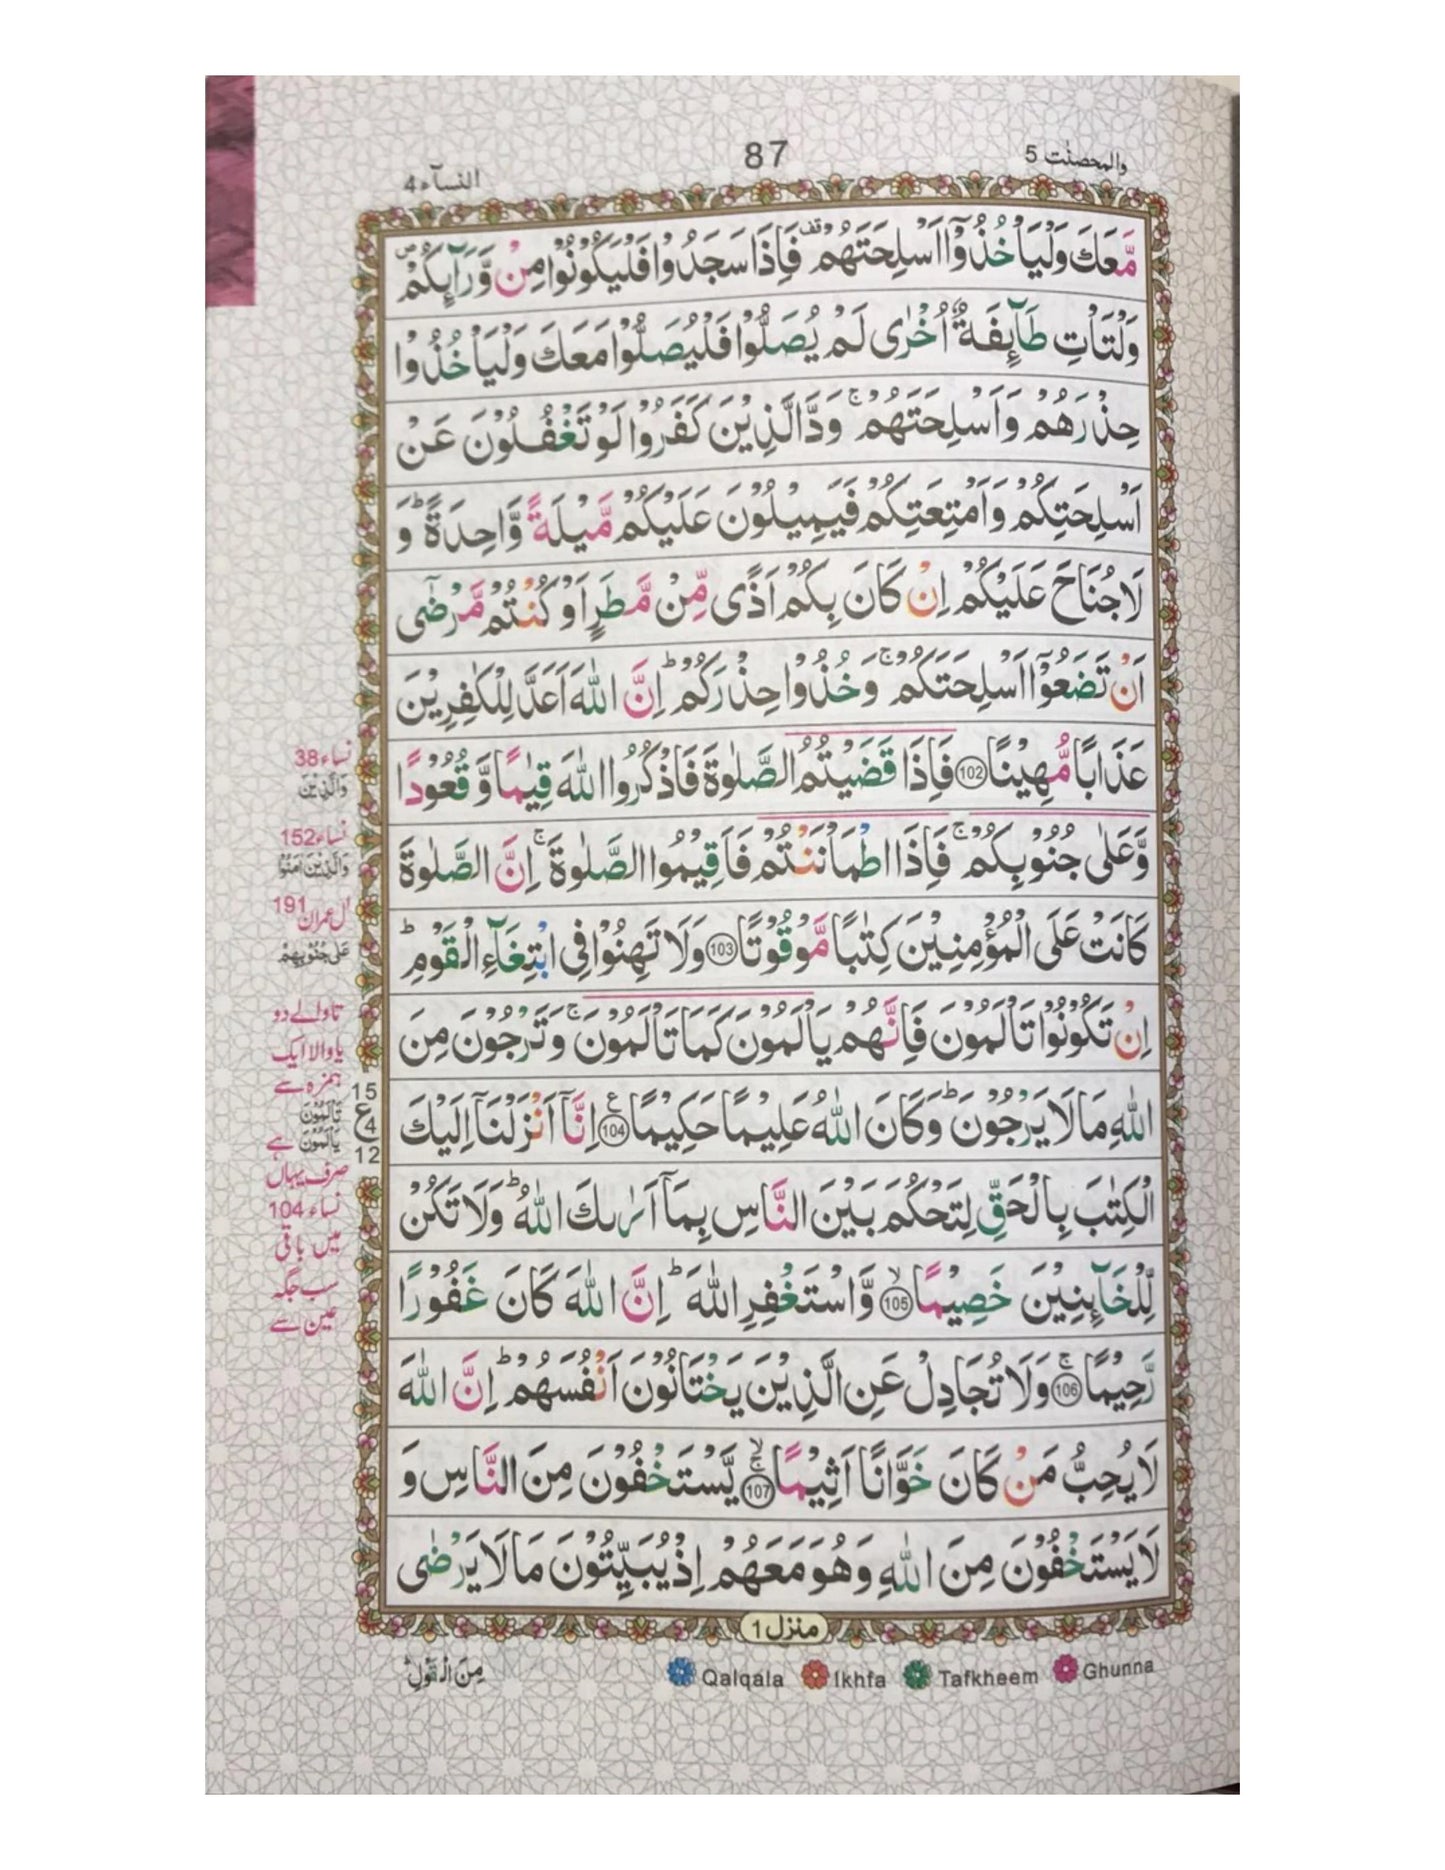 والمحصنٰت 5
87
النسآء 4
مَّعَكَ وَلْيَاْخُذُوْۤا اَسْلِحَتَهُمْ ۫ فَاِذَا سَجَدُوْا فَلْيَكُوْنُوْا مِنْ وَّرَآئِكُمْ ۪
وَلْتَاْتِ طَآئِفَةٌ اُخْرٰى لَمْ يُصَلُّوْا فَلْيُصَلُّوْا مَعَكَ وَلْيَاْخُذُوْا
حِذْرَهُمْ وَاَسْلِحَتَهُمْ ۚ وَدَّ الَّذِيْنَ كَفَرُوْا لَوْ تَغْفُلُوْنَ عَنْ
اَسْلِحَتِكُمْ وَاَمْتِعَتِكُمْ فَيَمِيْلُوْنَ عَلَيْكُمْ مَّيْلَةً وَّاحِدَةً ؕ وَ
لَا جُنَاحَ عَلَيْكُمْ اِنْ كَانَ بِكُمْ اَذًى مِّنْ مَّطَرٍ اَوْ كُنْتُمْ مَّرْضٰۤى
اَنْ تَضَعُوْۤا اَسْلِحَتَكُمْ ۚ وَخُذُوْا حِذْرَكُمْ ؕ اِنَّ اللّٰهَ اَعَدَّ لِلْكٰفِرِيْنَ
عَذَابًا مُّهِيْنًا 102 فَاِذَا قَضَيْتُمُ الصَّلٰوةَ فَاذْكُرُوا اللّٰهَ قِيٰمًا وَّ قُعُوْدًا
وَّعَلٰى جُنُوْبِكُمْ ۚ فَاِذَا اطْمَاْنَنْتُمْ فَاَقِيْمُوا الصَّلٰوةَ ۚ اِنَّ الصَّلٰوةَ
كَانَتْ عَلَى الْمُؤْمِنِيْنَ كِتٰبًا مَّوْقُوْتًا 103 وَلَا تَهِنُوْا فِى ابْتِغَآءِ الْقَوْمِ ؕ
اِنْ تَكُوْنُوْا تَاْلَمُوْنَ فَاِنَّهُمْ يَاْلَمُوْنَ كَمَا تَاْلَمُوْنَ ۚ وَتَرْجُوْنَ مِنَ
اللّٰهِ مَا لَا يَرْجُوْنَ ؕ وَكَانَ اللّٰهُ عَلِيْمًا حَكِيْمًا 104 ع اِنَّاۤ اَنْزَلْنَاۤ اِلَيْكَ
الْكِتٰبَ بِالْحَقِّ لِتَحْكُمَ بَيْنَ النَّاسِ بِمَاۤ اَرٰىكَ اللّٰهُ ؕ وَلَا تَكُنْ
لِّلْخَآئِنِيْنَ خَصِيْمًا 105 ۙ وَّاسْتَغْفِرِ اللّٰهَ ؕ اِنَّ اللّٰهَ كَانَ غَفُوْرًا
رَّحِيْمًا 106 ۚ وَلَا تُجَادِلْ عَنِ الَّذِيْنَ يَخْتَانُوْنَ اَنْفُسَهُمْ ؕ اِنَّ اللّٰهَ
لَا يُحِبُّ مَنْ كَانَ خَوَّانًا اَثِيْمًا 107 ۚۙ يَّسْتَخْفُوْنَ مِنَ النَّاسِ وَ
لَا يَسْتَخْفُوْنَ مِنَ اللّٰهِ وَهُوَ مَعَهُمْ اِذْ يُبَيِّتُوْنَ مَا لَا يَرْضٰى
نساء 38
وَالَّذِيْنَ
نساء 152
وَالَّذِيْنَ اٰمَنُوْا
اٰل عمران 191
عَلٰى جُنُوْبِهِمْ
تا والے دو
یا والا ایک
ہمزہ سے
تَاْلَمُوْنَ
يَاْلَمُوْنَ ہے
صرف یہاں
نساء 104
میں باقی
سب جگہ
عین سے
15
ع 4
12
منزل 1
مِنَ الْقَوْلِ ؕ
Qalqala Ikhfa Tafkheem Ghunna